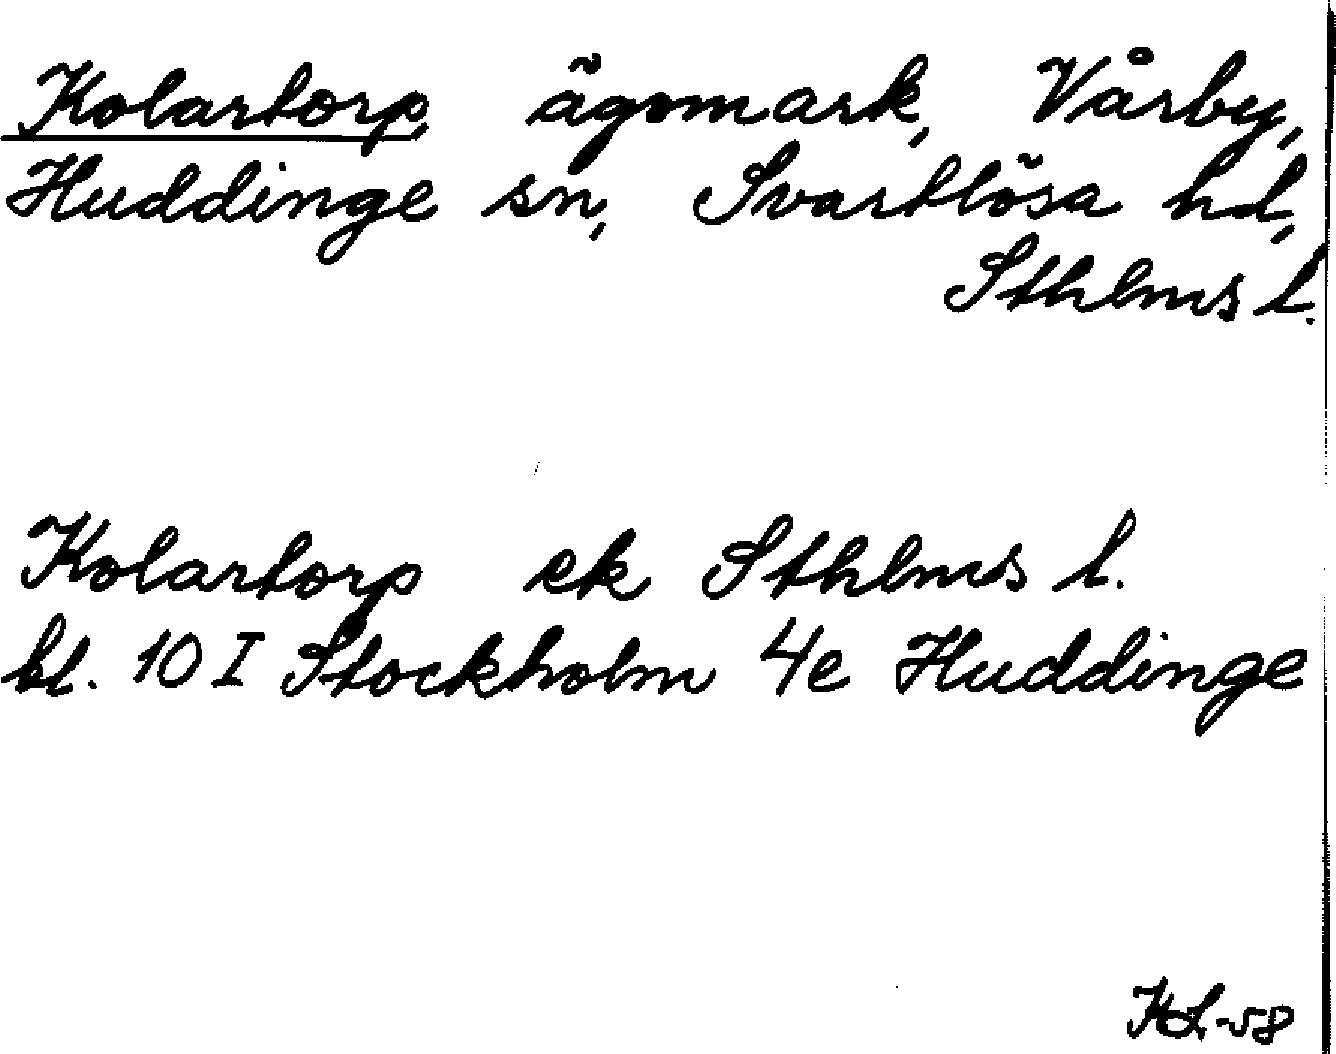 Kolartorp, ägomark, Vårby,
Huddinge sn, Svartlösa hd,
Sthlms l.
Kolartorp ek Sthlms l.
bl. 10 I Stockholm 4e Huddinge
KL-58